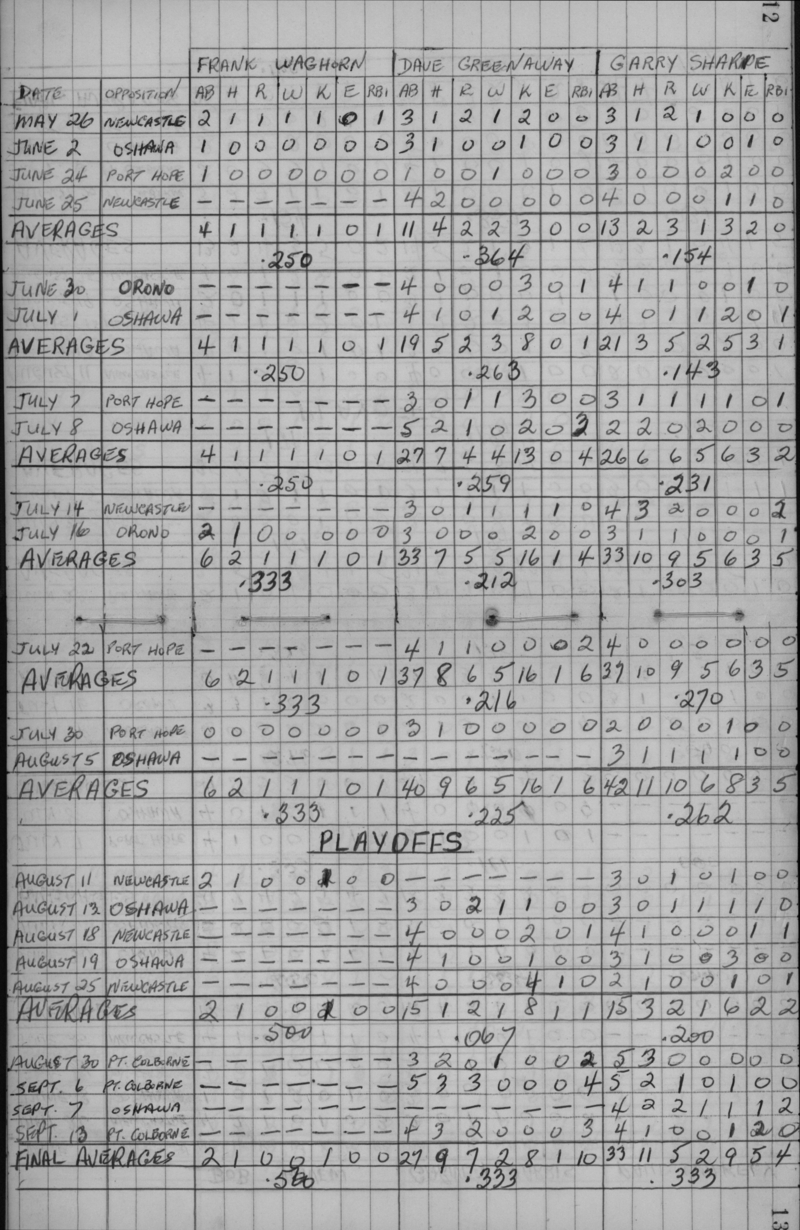 12
FRANK WAGHORN DAVE GREENAWAY GARRY SHARPE
DATE OPPOSITION AB H R W K E RBI AB H R W K E RBI AB H R W K E RBI
MAY 26 NEWCASTLE 2 1 1 1 1 0 1 3 1 2 1 2 0 0 3 1 2 1 0 0 0
JUNE 2 OSHAWA 1 0 0 0 0 0 0 3 1 0 0 1 0 0 3 1 1 0 0 1 0
JUNE 24 PORT HOPE 1 0 0 0 0 0 0 1 0 0 1 0 0 0 3 0 0 0 2 0 0
JUNE 25 NEWCASTLE - - - - - - - 4 2 0 0 0 0 0 4 0 0 0 1 1 0
AVERAGES 4 1 1 1 1 0 1 11 4 2 2 3 0 0 13 2 3 1 3 2 0
.250 .364 .154
JUNE 30 ORONO - - - - - - - 4 0 0 0 3 0 1 4 1 1 0 0 1 0
JULY 1 OSHAWA - - - - - - - 4 1 0 1 2 0 0 4 0 1 1 2 0 1
AVERAGES 4 1 1 1 1 0 1 19 5 2 3 8 0 1 21 3 5 2 5 3 1
.250 .263 .143
JULY 7 PORT HOPE - - - - - - - 3 0 1 1 3 0 0 3 1 1 1 1 0 1
JULY 8 OSHAWA - - - - - - - 5 2 1 0 2 0 3 2 2 0 2 0 0 0
AVERAGES 4 1 1 1 1 0 1 27 7 4 4 13 0 4 26 6 6 5 6 3 2
.250 .259 .231
JULY 14 NEWCASTLE - - - - - - - 3 0 1 1 1 1 0 4 3 2 0 0 0 2
JULY 16 ORONO 2 1 0 0 0 0 0 3 0 0 0 2 0 0 3 1 1 0 0 0 1
AVERAGES 6 2 1 1 1 0 1 33 7 5 5 16 1 4 33 10 9 5 6 3 5
.333 .212 .303
JULY 22 PORT HOPE - - - - - - - 4 1 1 0 0 0 2 4 0 0 0 0 0 0
AVERAGES 6 2 1 1 1 0 1 37 8 6 5 16 1 6 37 10 9 5 6 3 5
.333 .216 .270
JULY 30 PORT HOPE 0 0 0 0 0 0 0 3 1 0 0 0 0 0 2 0 0 0 1 0 0
AUGUST 5 OSHAWA - - - - - - - - - - - - - - 3 1 1 1 1 0 0
AVERAGES 6 2 1 1 1 0 1 40 9 6 5 16 1 6 42 11 10 6 8 3 5
.333 .225 .262
PLAYOFFS
AUGUST 11 NEWCASTLE 2 1 0 0 1 0 0 - - - - - - - 3 0 1 0 1 0 0
AUGUST 12 OSHAWA - - - - - - - 3 0 2 1 1 0 0 3 0 1 1 1 1 0
AUGUST 18 NEWCASTLE - - - - - - - 4 0 0 0 2 0 1 4 1 0 0 0 1 1
AUGUST 19 OSHAWA - - - - - - - 4 1 0 0 1 0 0 3 1 0 0 3 0 0
AUGUST 25 NEWCASTLE - - - - - - - 4 0 0 0 4 1 0 2 1 0 0 1 0 1
AVERAGES 2 1 0 0 1 0 0 15 1 2 1 8 1 1 15 3 2 1 6 2 2
.500 .067 .200
AUGUST 30 PT. COLBORNE - - - - - - - 3 2 0 1 0 0 2 5 3 0 0 0 0 0
SEPT. 6 PT. COLBORNE - - - - - - - 5 3 3 0 0 0 4 5 2 1 0 1 0 0
SEPT. 7 OSHAWA - - - - - - - - - - - - - - 4 2 2 1 1 1 2
SEPT. 13 PT. COLBORNE - - - - - - - 4 3 2 0 0 0 3 4 1 0 0 1 2 0
FINAL AVERAGES 2 1 0 0 1 0 0 27 9 7 2 8 1 10 33 11 5 2 9 5 4
.500 .333 .333
13